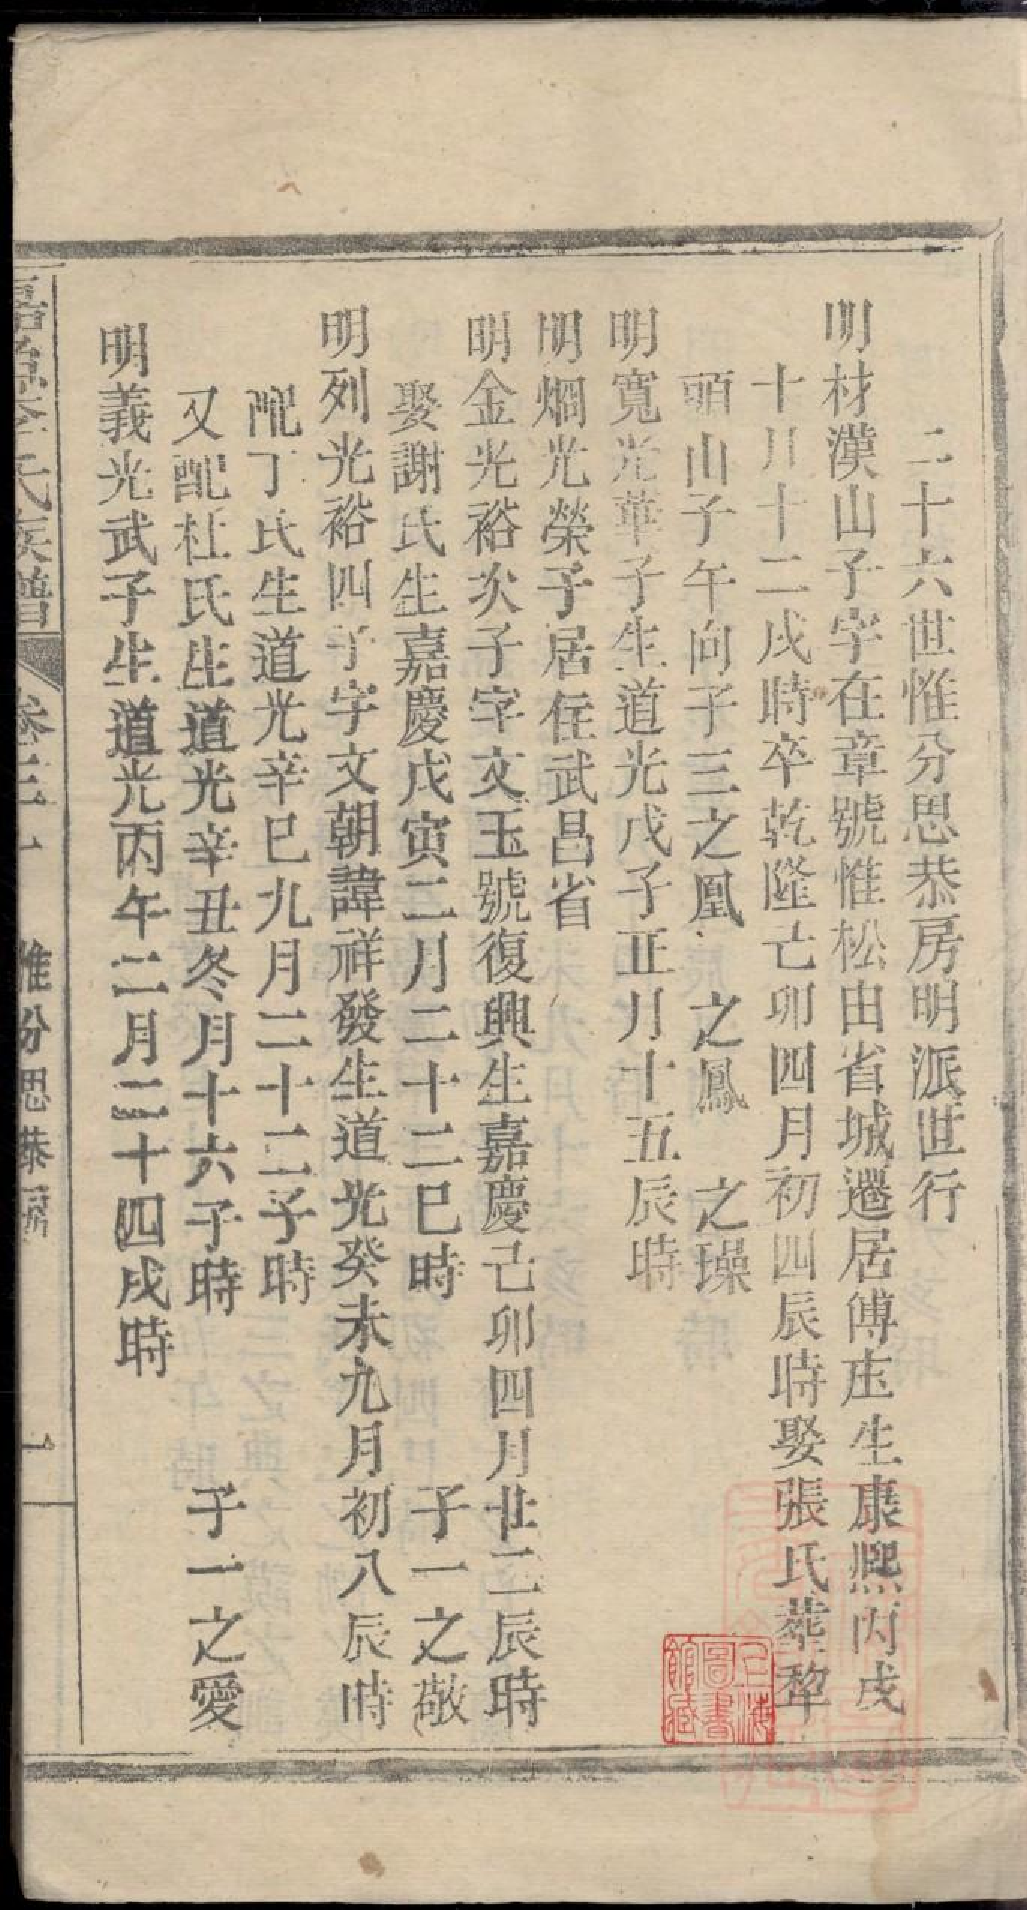 二十六世惟分思恭房明派世行
明材漢山子字在章號惟松由省城遷居傅庄生康熙丙戌
十月十二戌時卒乾隆己卯四月初四辰時娶張氏塟犂
頭山子午向子三之凰 之鳳 之璪
明寬光華子生道光戊子正月十五辰時
明烱光榮子居住武昌省
明金光裕次子字文玉號復興生嘉慶己卯四月廿二辰時
娶謝氏生嘉慶戊寅二月二十二巳時 子一之敬
明列光裕四子字文朝諱祥發生道光癸未九月初八辰時
配丁氏生道光辛巳九月二十二子時
又配杜氏生道光辛丑冬月十六子時 子一之愛
明義光武子生道光丙午二月二十四戌時
氏族譜 卷三十 惟分思恭房 一
上海圖書館藏